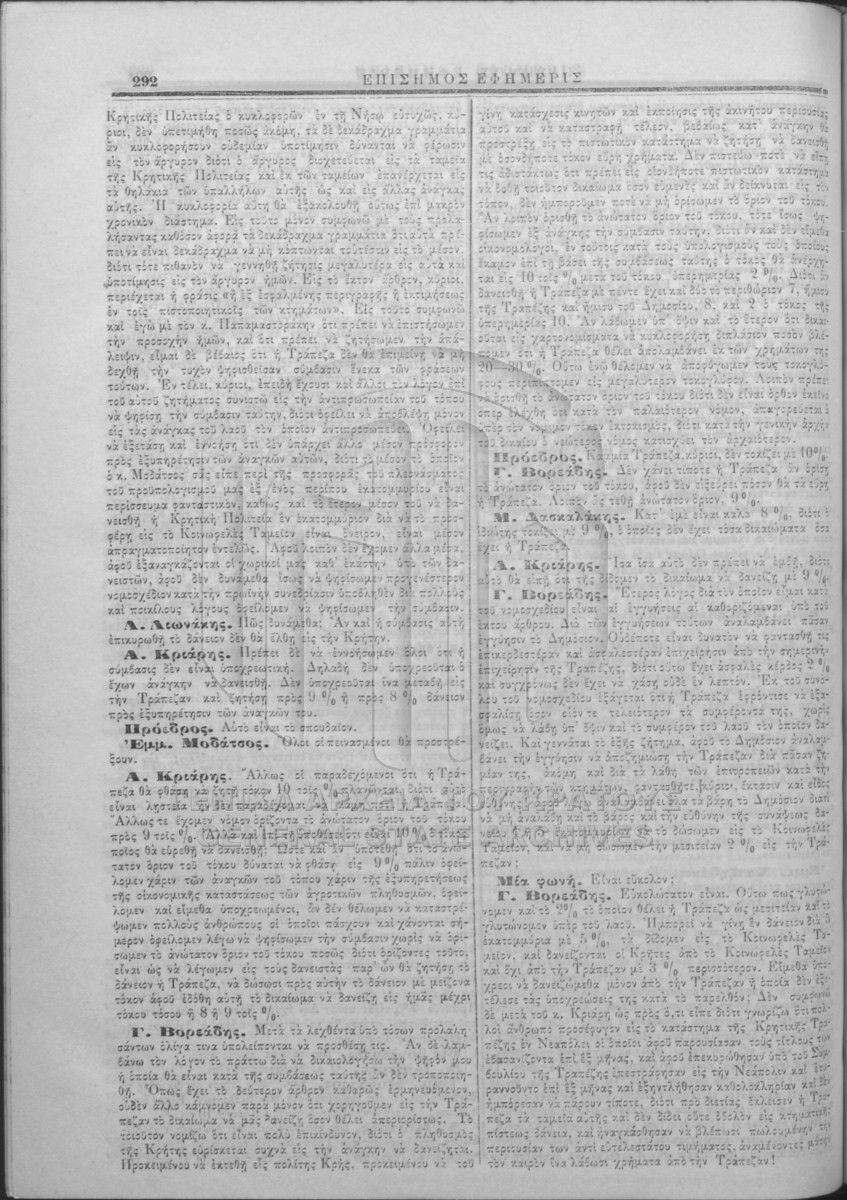 292
ΕΠΙΣΗΜΟΣ ΕΦΗΜΕΡΙΣ
Κρητικῆς Πολιτείας ὁ κυκλοφορῶν ἐν τῇ Νήσῳ εὐτυχῶς, κύ-
ριοι, δὲν ὑπετιμήθη ποσῶς ἀκόμη, τὰ δὲ δεκάδραχμα γραμμάτια
ἂν κυκλοφορήσουν οὐδεμίαν ὑποτίμησιν δύνανται νὰ φέρωσιν
εἰς τὸν ἄργυρον διότι ὁ ἄργυρος διοχετεύεται εἰς τὰ ταμεῖα
τῆς Κρητικῆς Πολιτείας καὶ ἐκ τῶν ταμείων ἐπανέρχεται εἰς
τὰ θηλάκια τῶν ὑπαλλήλων αὐτῆς ὡς καὶ εἰς ἄλλας ἀνάγκας
αὐτῆς. Ἡ κυκλοφορία αὐτὴ θὰ ἐξακολουθῇ οὕτως ἐπὶ μακρὸν
χρονικὸν διάστημα. Εἰς τοῦτο μόνον συμφωνῶ μὲ τοὺς προλα-
λήσαντας καθόσον ἀφορᾷ τὰ δεκάδραχμα γραμμάτια ὅτι αὐτὰ πρέ-
πει νὰ εἶναι δεκάδραχμα νὰ μὴ κόπτωνται τουτέστιν εἰς τὸ μέσον,
διότι τότε πιθανὸν νὰ γεννηθῇ ζήτησις μεγαλυτέρα εἰς αὐτὰ καὶ
ὑποτίμησις εἰς τὸν ἄργυρον ἡμῶν. Εἰς τὸ ἕκτον ἄρθρον, κύριοι,
περιέχεται ἡ φράσις «ἢ ἐξ ἐσφαλμένης περιγραφῆς ἢ ἐκτιμήσεως
ἐν τοῖς πιστοποιητικοῖς τῶν κτημάτων». Εἰς τοῦτο συμφωνῶ
καὶ ἐγὼ μὲ τὸν κ. Παπαμαστοράκην ὅτι πρέπει νὰ ἐπιστήσωμεν
τὴν προσοχὴν ἡμῶν, καὶ ὅτι πρέπει νὰ ζητήσωμεν τὴν ἀπά-
λειψιν, εἶμαι δὲ βέβαιος ὅτι ἡ Τράπεζα δὲν θὰ ἐπιμείνῃ νὰ μὴ
δεχθῇ τὴν τυχὸν ψηφισθεῖσαν σύμβασιν ἕνεκα τῶν φράσεων
τούτων. Ἐν τέλει, κύριοι, ἐπειδὴ ἔχουσι καὶ ἄλλοι τὸν λόγον ἐπὶ
τοῦ αὐτοῦ ζητήματος συνιστῶ εἰς τὴν ἀντιπρωσωπείαν τοῦ τόπου
νὰ ψηφίσῃ τὴν σύμβασιν ταύτην, διότι ὀφείλει νὰ ἀποβλέψῃ μόνον
εἰς τὰς ἀνάγκας τοῦ λαοῦ τὸν ὁποῖον ἀντιπροσωπεύει. Ὀφείλει
νὰ ἐξετάσῃ καὶ ἐννοήσῃ ὅτι δὲν ὑπάρχει ἄλλο μέσον πρόσφορον
πρὸς ἐξυπηρέτησιν τῶν ἀναγκῶν αὐτῶν, διότι τὸ μέσον τὸ ὁποῖον
ὁ κ. Μοδάτσος σᾶς εἶπε περὶ τῆς προσφορᾶς τοῦ πλεονάσματος
τοῦ προϋπολογισμοῦ μας ἐξ ἑνὸς περίπου ἑκατομμυρίου εἶναι
περίσσευμα φανταστικόν, καθὼς καὶ τὸ ἕτερον μέσον τοῦ νὰ δα-
νεισθῇ ἡ Κρητικὴ Πολιτεία ἓν ἑκατομμύριον διὰ νὰ τὸ προσ-
φέρῃ εἰς τὸ Κοινωφελὲς Ταμεῖον εἶναι ὄνειρον, εἶναι μέσον
ἀπραγματοποίητον ἐντελῶς. Ἀφοῦ λοιπὸν δὲν ἔχομεν ἄλλα μέσα,
ἀφοῦ ἐξαναγκάζονται οἱ χωρικοί μας καθ' ἑκάστην ὑπὸ τῶν δα-
νειστῶν, ἀφοῦ δὲν δυνάμεθα ἴσως νὰ ψηφίσωμεν προγενέστερον
νομοσχέδιον κατὰ τὴν πρωϊνὴν συνεδρίασιν ὑποβληθὲν διὰ πολλοὺς
καὶ ποικίλους λόγους ὀφείλομεν νὰ ψηφίσωμεν τὴν σύμβασιν.
Α. Λιωνάκης. Πῶς δυνάμεθα; Ἂν καὶ ἡ σύμβασις αὐτὴ
ἐπικυρωθῇ τὸ δάνειον δὲν θὰ ἔλθῃ εἰς τὴν Κρήτην.
Α. Κριάρης. Πρέπει δὲ νὰ ἐννοήσωμεν ὅλοι ὅτι ἡ
σύμβασις δὲν εἶναι ὑποχρεωτική. Δηλαδὴ δὲν ὑποχρεοῦται ὁ
ἔχων ἀνάγκην νὰ δανεισθῇ. Δὲν ὑποχρεοῦται ἵνα μεταβῇ εἰς
τὴν Τράπεζαν καὶ ζητήσῃ πρὸς 9 % ἢ πρὸς 8 % δάνειον
πρὸς ἐξυπηρέτησιν τῶν ἀναγκῶν του.
Πρόεδρος. Αὐτὸ εἶναι τὸ σπουδαῖον.
Ἐμμ. Μοδάτσος. Ὅλοι οἱ πεινασμένοι θὰ προστρέ-
ξουν.
Α. Κριάρης. Ἄλλως οἱ παραδεχόμενοι ὅτι ἡ Τρά-
πεζα θὰ φθάσῃ νὰ ζητῇ τόκον 10 τοῖς % πλανῶνται, διότι αὐτὸ
εἶναι λῃστεία ἣν δὲν παραδέχομαι νὰ κάμῃ ποτὲ ἡ Τράπεζα.
Ἄλλως τε ἔχομεν νόμον ὁρίζοντα τὸ ἀνώτατον ὅριον τοῦ τόκου
πρὸς 9 τοῖς %. Ἀλλὰ καὶ ἐπὶ τῇ ὑποθέσει ὅτι εἶναι 10 % ὁ τόκος,
ποῖος θὰ εὑρεθῇ νὰ δανεισθῇ; Ὥστε καὶ ἂν ὑποτεθῇ ὅτι τὸ ἀνώ-
τατον ὅριον τοῦ τόκου δύναται νὰ φθάσῃ εἰς 9 % πάλιν ὀφεί-
λομεν χάριν τῶν ἀναγκῶν τοῦ τόπου χάριν τῆς ἐξυπηρετήσεως
τῆς οἰκονομικῆς καταστάσεως τῶν ἀγροτικῶν πληθυσμῶν, ὀφεί-
λομεν καὶ εἴμεθα ὑποχρεωμένοι, ἂν δὲν θέλωμεν νὰ καταστρέ-
ψωμεν πολλοὺς ἀνθρώπους οἱ ὁποῖοι πάσχουν καὶ χάνονται σή-
μερον ὀφείλομεν λέγω νὰ ψηφίσωμεν τὴν σύμβασιν χωρὶς νὰ ὁρί-
σωμεν τὸ ἀνώτατον ὅριον τοῦ τόκου ποσῶς διότι ὁρίζοντες τοῦτο,
εἶναι ὡς νὰ λέγωμεν εἰς τοὺς δανειστὰς παρ' ὧν θὰ ζητήσῃ τὸ
δάνειον ἡ Τράπεζα, νὰ δώσωσι πρὸς αὐτὴν τὸ δάνειον μὲ μείζονα
τόκον ἀφοῦ ἐδόθη αὐτῇ τὸ δικαίωμα νὰ δανείζῃ εἰς ἡμᾶς μέχρι
τόκου τόσου ἢ 8 ἢ 9 τοῖς %.
Γ. Βορεάδης. Μετὰ τὰ λεχθέντα ὑπὸ τόσων προλαλη-
σάντων ὀλίγα τινα ὑπολείπονται νὰ προσθέσῃ τις. Ἂν δὲ λαμ-
βάνω τὸν λόγον τὸ πράττω διὰ νὰ δικαιολογήσω τὴν ψῆφόν μου
ἡ ὁποία θὰ εἶναι κατὰ τῆς συμβάσεως ταύτης ἂν δὲν τροποποιη-
θῇ. Ὅπως ἔχει τὸ δεύτερον ἄρθρον καθαρῶς ἑρμηνευόμενον,
οὐδὲν ἄλλο κάμνομεν παρὰ μόνον ὅτι χορηγοῦμεν εἰς τὴν Τρά-
πεζαν τὸ δικαίωμα νὰ μᾶς δανείζῃ ὅσον θέλει ἀπεριορίστως. Τὸ
τοιοῦτον νομίζω ὅτι εἶναι πολὺ ἐπικίνδυνον, διότι ὁ πληθυσμὸς
τῆς Κρήτης εὑρίσκεται συχνὰ εἰς τὴν ἀνάγκην νὰ δανείζηται.
Προκειμένου νὰ ἐκτεθῇ εἷς πολίτης Κρής, προκειμένου νὰ τοῦ
γίνῃ κατάσχεσις κινητῶν καὶ ἐκποίησις τῆς ἀκινήτου περιουσίας
αὐτοῦ καὶ νὰ καταστραφῇ τέλεον, βεβαίως κατ' ἀνάγκην θὰ
προστρέξῃ εἰς τὸ πιστωτικὸν κατάστημα νὰ ζητήσῃ νὰ δανεισθῇ
μὲ ὁσονδήποτε τόκον εὕρῃ χρήματα. Δὲν πιστεύω ποτὲ νὰ εἴπῃ
τις ἀδιστάκτως ὅτι πρέπει εἰς οἱονδήποτε πιστωτικὸν κατάστημα
νὰ δοθῇ τοιοῦτον δικαίωμα ὅσον εὐμενὲς καὶ ἂν δείκνυται εἰς τὸν
τόπον, δὲν ἠμποροῦμεν ποτὲ νὰ μὴ ὁρίσωμεν τὸ ὅριον τοῦ τόκου.
Ἂν λοιπὸν ὁρισθῇ τὸ ἀνώτατον ὅριον τοῦ τόκου, τότε ἴσως ψη-
φίσωμεν ἐξ ἀνάγκης τὴν σύμβασιν ταύτην, διότι ἂν καὶ δὲν εἴμεθα
οἰκονομολόγοι, ἐν τούτοις κατὰ τοὺς ὑπολογισμοὺς τοὺς ὁποίους
ἔκαμον ἐπὶ τῇ βάσει τῆς συμβάσεως ταύτης ὁ τόκος θὰ ἀνέρχη-
ται εἰς 10 τοῖς % μετὰ τοῦ τόκου ὑπερημερίας 2 %. Διότι ἂν
δανεισθῇ ἡ Τράπεζα μὲ πέντε ἔχει καὶ δύο τὸ περιθώριον 7, ἥμισυ
τῆς Τραπέζης καὶ ἥμισυ τοῦ Δημοσίου, 8, καὶ 2 ὁ τόκος τῆς
ὑπερημερίας 10. Ἂν λάβωμεν ὑπ' ὄψιν καὶ τὸ ἕτερον ὅτι δικαι-
οῦται εἰς χαρτονομίσματα νὰ κυκλοφορήσῃ διπλάσιον ποσὸν βλέ-
πομεν ὅτι ἡ Τράπεζα θέλει ἀπολαμβάνει ἐκ τῶν χρημάτων της
20—30 %. Οὕτω ἐνῷ θέλομεν νὰ ἀποφύγωμεν τοὺς τοκογλύ-
φους περιπίπτομεν εἰς μεγαλύτερον τοκογλύφον. Λοιπὸν πρέπει
νὰ ὁρισθῇ τὸ ἀνώτατον ὅριον τοῦ τόκου διότι δὲν εἶναι ὀρθὸν ἐκεῖνο
ὅπερ ἐλέχθη ὅτι κατὰ τὸν παλαιότερον νόμον, ἀπαγορεύεται ὁ
ὑπὲρ τὸν νόμιμον τόκον ἐκτοκισμός, διότι κατὰ τὴν γενικὴν ἀρχὴν
τοῦ δικαίου ὁ νεώτερος νόμος κατισχύει τὸν ἀρχαιότερον.
Πρόεδρος. Καμμία Τράπεζα, κύριοι, δὲν τοκίζει μὲ 10 %.
Γ. Βορεάδης. Δὲν χάνει τίποτε ἡ Τράπεζα ἂν ὁρίσῃ
τὸ ἀνώτατον ὅριον τοῦ τόκου, ἀφοῦ δὲν εἰξεύρει πόσον θὰ τὰ εὕρῃ
ἡ Τράπεζα. Λοιπὸν ἂς τεθῇ ἀνώτατον ὅριον, 9 %.
Μ. Δασκαλάκης. Κατ' ἐμὲ εἶναι καλὰ 8 %, διότι ὁ
ἰδιώτης τοκίζει μὲ 9 %, ὁ ὁποῖος δὲν ἔχει τόσα δικαιώματα ὅσα
ἔχει ἡ Τράπεζα.
Α. Κριάρης. Ἴσα ἴσα αὐτὸ δὲν πρέπει νὰ ἐμβῇ, διότι
αὐτὸ θὰ εἰπῇ ὅτι τῆς δίδομεν τὸ δικαίωμα νὰ δανείζῃ μὲ 9 %.
Γ. Βορεάδης. Ἕτερος λόγος διὰ τὸν ὁποῖον εἶμαι κατὰ
τοῦ νομοσχεδίου εἶναι αἱ ἐγγυήσεις αἱ καθοριζόμεναι ὑπὸ τοῦ
ἕκτου ἄρθρου. Διὰ τῶν ἐγγυήσεων τούτων ἀναλαμβάνει πᾶσαν
ἐγγύησιν τὸ Δημόσιον. Οὐδέποτε εἶναι δυνατὸν νὰ φαντασθῇ τις
ἐπικερδεστέραν καὶ ἀσφαλεστέραν ἐπιχείρησιν ἀπὸ τὴν σημερινὴν
ἐπιχείρησιν τῆς Τραπέζης, διότι οὕτω ἔχει ἀσφαλὲς κέρδος 2 %
καὶ συγχρόνως δὲν ἔχει νὰ χάσῃ οὐδὲ ἓν λεπτόν. Ἐκ τοῦ συνό-
λου τοῦ νομοσχεδίου ἐξάγεται ὅτι ἡ Τράπεζα ἐφρόντισε νὰ ἐξα-
σφαλίσῃ ὅσον οἷόν τε τελειότερον τὰ συμφέροντά της, χωρὶς
ὅμως νὰ λάβῃ ὑπ' ὄψιν καὶ τὸ συμφέρον τοῦ λαοῦ τὸν ὁποῖον δα-
νείζει. Καὶ γεννᾶται τὸ ἑξῆς ζήτημα, ἀφοῦ τὸ Δημόσιον ἀναλαμ-
βάνει τὴν ἐγγύησιν νὰ ἀποζημιώσῃ τὴν Τράπεζαν διὰ πᾶσαν ζη-
μίαν της, ἀκόμη καὶ διὰ τὰ λάθη τῶν ἐπιτροπειῶν κατὰ τὴν
περιγραφὴν τῶν κτημάτων, φαντασθῆτε, κύριοι, ἔκτασιν καὶ εἶδος
εὐθύνης, ἀφοῦ λέγω ἀναλαμβάνει ὅλα τὰ βάρη τὸ Δημόσιον διατί
νὰ μὴ ἀναλάβῃ καὶ τὸ βάρος καὶ τὴν εὐθύνην τῆς συνάψεως δα-
νείου 4 ἢ 5 ἑκατομμυρίων νὰ τὸ δώσωμεν εἰς τὸ Κοινωφελὲς
Ταμεῖον, καὶ νὰ μὴ δώσωμεν τὴν μεσιτείαν 2 % εἰς τὴν Τρά-
πεζαν;
Μία φωνή. Εἶναι εὔκολον;
Γ. Βορεάδης. Εὐκολώτατον εἶναι. Οὕτω πως γλυτώ-
νομεν καὶ τὸ 2 % τὸ ὁποῖον θέλει ἡ Τράπεζα ὡς μεσιτείαν καὶ τὸ
γλυτώνομεν ὑπὲρ τοῦ λαοῦ. Ἠμπορεῖ νὰ γίνῃ ἓν δάνειον διὰ 5
ἑκατομμύρια μὲ 5 %, τὰ δίδομεν εἰς τὸ Κοινωφελὲς Τα-
μεῖον, καὶ δανείζονται οἱ Κρῆτες ἀπὸ τὸ Κοινωφελὲς Ταμεῖον
καὶ ὄχι ἀπὸ τὴν Τράπεζαν μὲ 3 % περισσότερον. Εἴμεθα ὑπό-
χρεοι νὰ δανειζώμεθα μόνον ἀπὸ τὴν Τράπεζαν ἡ ὁποία δὲν ἐξε-
τέλεσε τὰς ὑποχρεώσεις της κατὰ τὸ παρελθόν; Δὲν συμφωνῶ
δὲ μετὰ τοῦ κ. Κριάρη ὡς πρὸς ὅ,τι εἶπε διότι γνωρίζω ὅτι πολ-
λοὶ ἄνθρωποι προσέφυγον εἰς τὸ κατάστημα τῆς Κρητικῆς Τρα-
πέζης ἐν Νεαπόλει οἱ ὁποῖοι ἀφοῦ παρουσίασαν τοὺς τίτλους των
ἐβασανίζοντο ἐπὶ ἓξ μῆνας, καὶ ἀφοῦ ἐπεκυρώθησαν ὑπὸ τοῦ Συμ-
βουλίου τῆς Τραπέζης ἐπεστράφησαν εἰς τὴν Νεάπολιν καὶ ἐτυ-
ραννοῦντο ἐπὶ ἓξ μῆνας καὶ ἐξηντλήθησαν καθολοκληρίαν καὶ δὲν
ἠμπόρεσαν νὰ πάρουν τίποτε, διότι πρὸ διετίας ἔκλεισεν ἡ Τρά-
πεζα τὰ ταμεῖα αὐτῆς καὶ δὲν δίδει οὔτε ὀβολὸν εἰς κτηματικῆς
πίστεως δάνεια, καὶ ἠναγκάσθησαν νὰ βλέπωσι πωλουμένην τὴν
περιουσίαν των ἀντὶ εὐτελεστάτου τιμήματος, ἀναμένοντες μάτην
τὸν καιρὸν ἵνα λάβωσι χρήματα ἀπὸ τὴν Τράπεζαν!